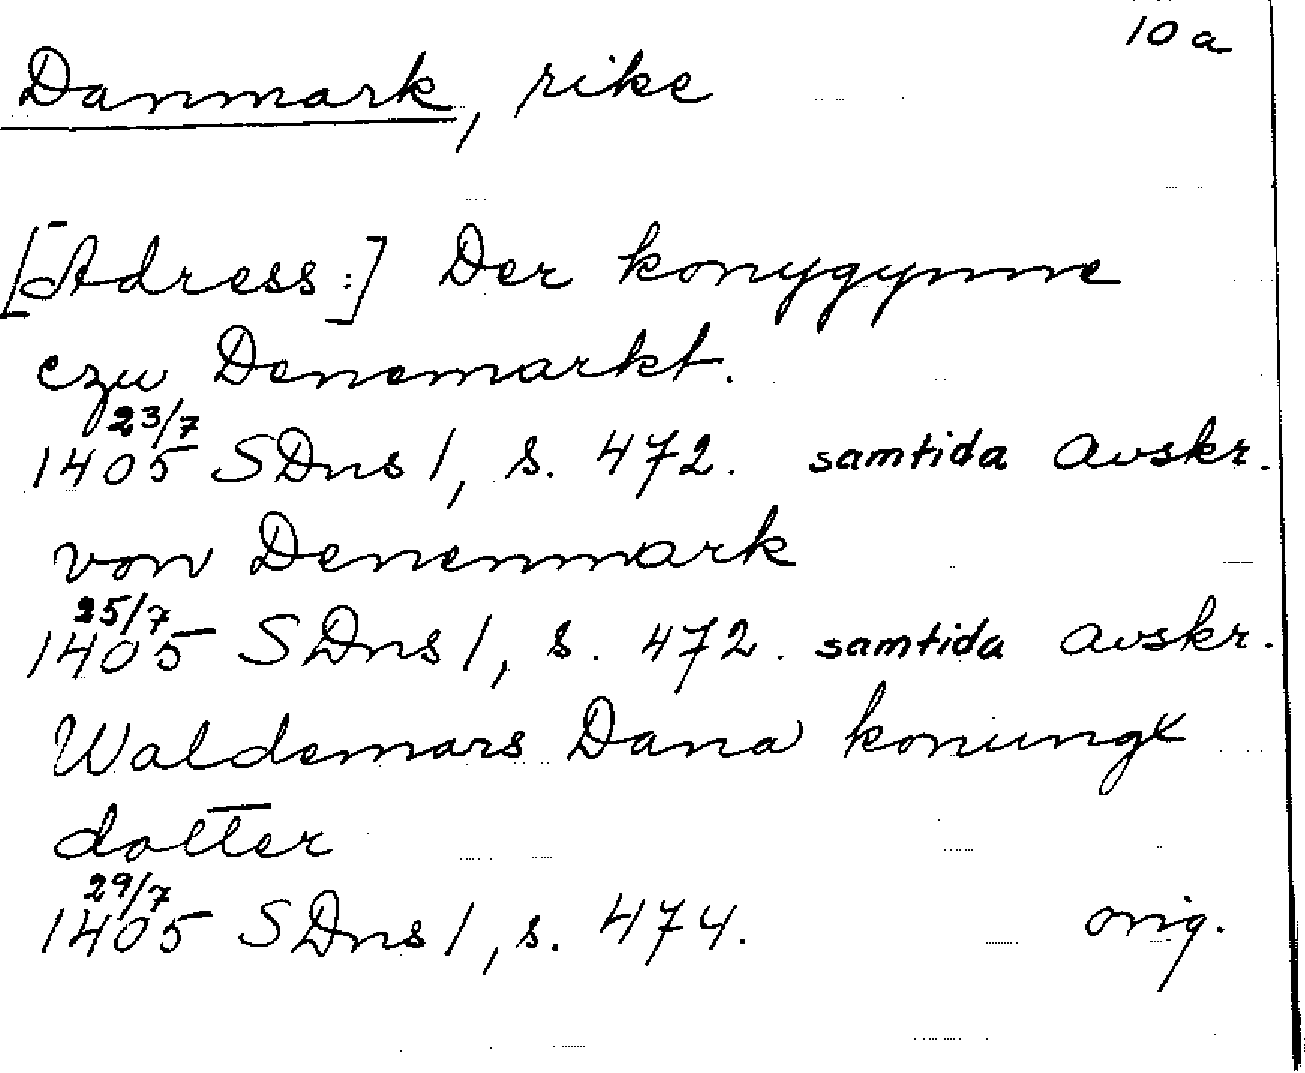 10 a
Danmark, rike
[Adress:] Der konygynne
czu Denemarkt.
23/7
1405 SDns 1, s. 472. samtida avskr.
von Denenmark
25/7
1405 SDns 1, s. 472. samtida avskr.
Waldemars Dana konungx
dotter
29/7
1405 SDns 1, s. 474. orig.